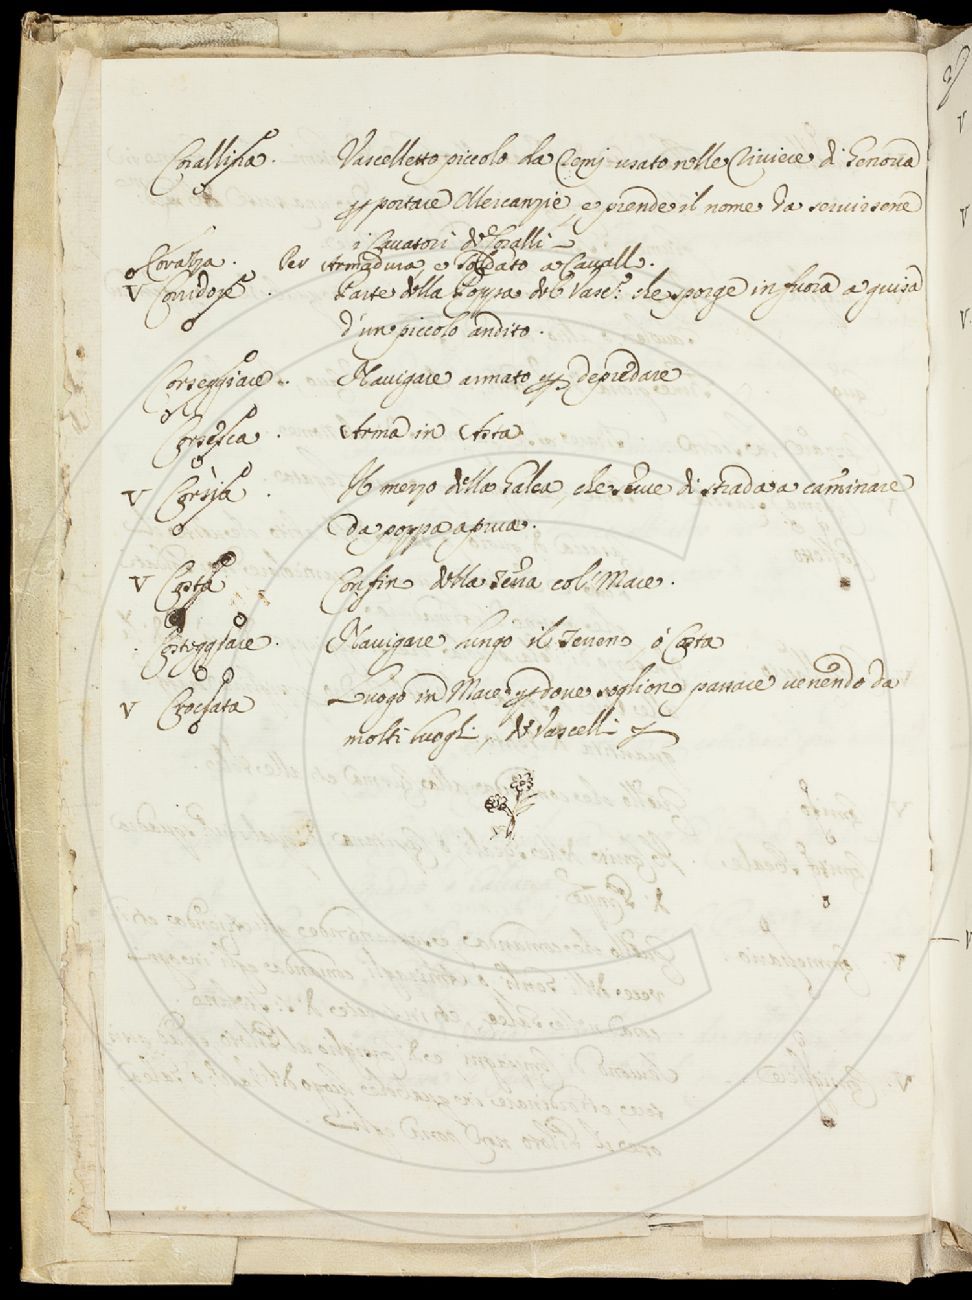 Corallina. Vascelletto piccolo da Remj usato nelle Riviere di Genova
p portare Mercanzie, e prende il nome da servirsene
i Cavatori de Coralli
Corazza. Per Armadura, e Soldato a Cavallo.
V Corridore. Parte della Poppa del Vasc.º che sporge in fuora a guisa
d'un piccolo andito.
Corseggiare. Navigare armato p depredare
Corsesca. Arma in Asta
V Corsia. Il mezzo della Galea, che serve di strada a caminare
da poppa a prua.
V Costa Confin della Terra col Mare.
Costeggiare. Navigare lungo il Terren, ó Costa
V Crociata Luogo in Mare p dove soglion passare venendo da
molti luoghi, de Vascelli